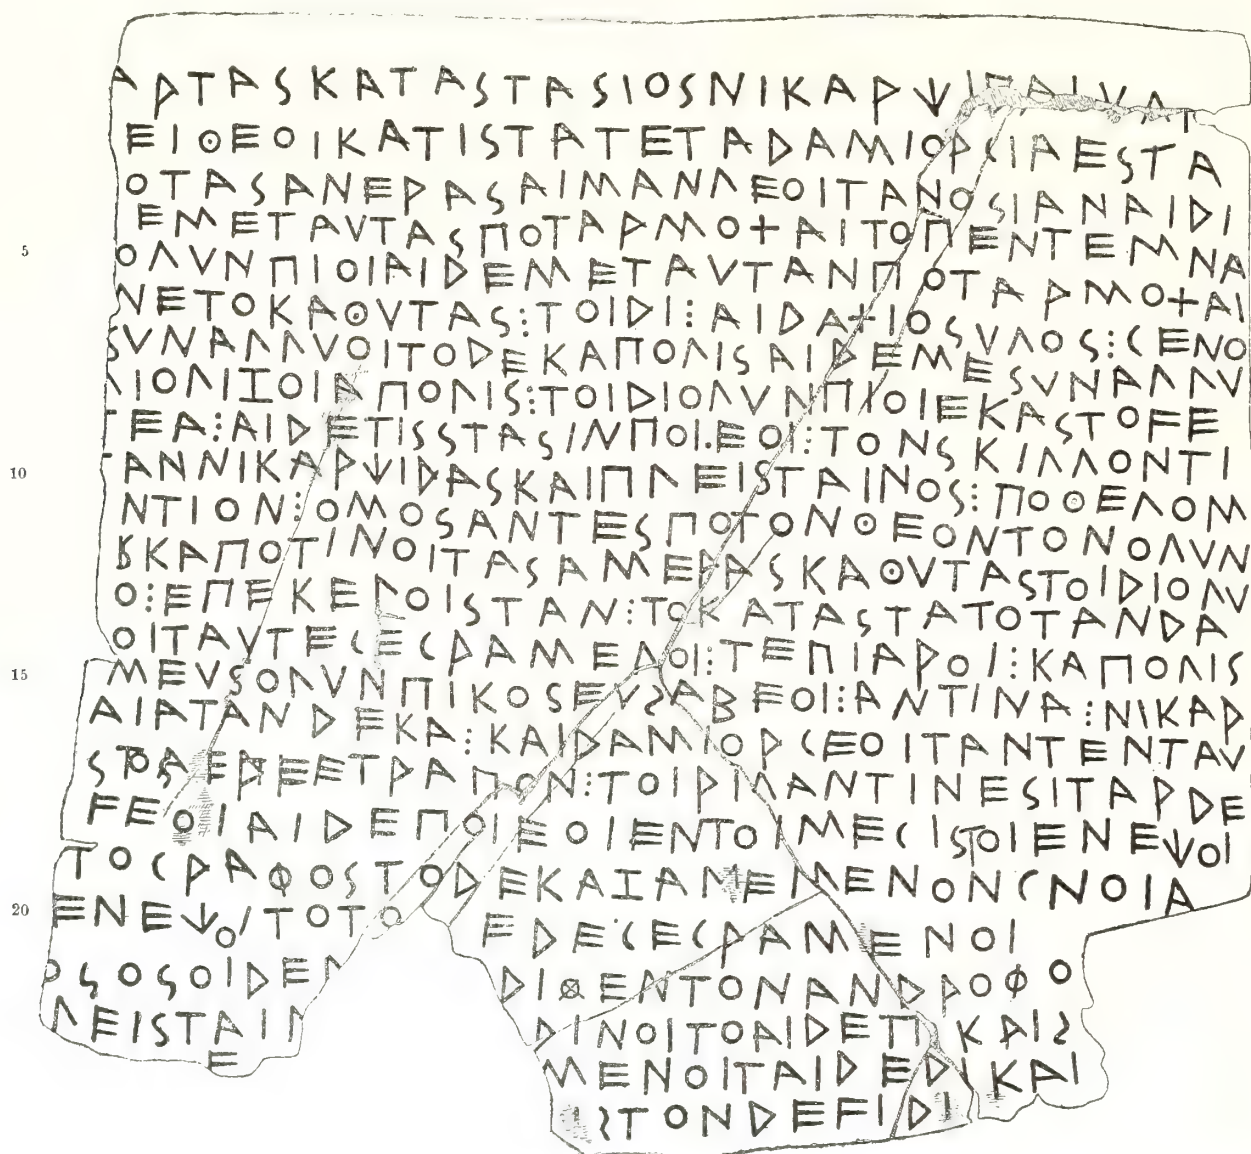 ΑΡΤΑΣΚΑΤΑΣΤΑΣΙΟΣΝΙΚΑΡΨΙΠΑΙΥΑΤ
ΕΙΘΕΟΙΚΑΤΙΣΤΑΤΕΤΑΔΑΜΙΟΡΓΙΑΕΣΤΑ
ΟΤΑΣΑΝΕΡΑΣΑΙΜΑΝΛΕΟΙΤΑΝΟΣΙΑΝΑΙΔΙ
ΕΜΕΤΑΥΤΑΣΠΟΤΑΡΜΟ+ΑΙΤΟΠΕΝΤΕΜΝΑ
5 ΟΛΥΝΠΙΟΙΑΙΔΕΜΕΤΑΥΤΑΝΠΟΤΑΡΜΟ+ΑΙ
ΝΕΤΟΚΑΘΥΤΑΣ⋮ΤΟΙΔΙ⋮ΑΙΔΑ+ΙΟΣΥΛΟΣ⋮ΓΕΝΟ
ΣΥΝΑΛΛΥΟΙΤΟΔΕΚΑΠΟΛΙΣΑΙΔΕΜΕΣΥΝΑΛΛΥ
ΛΙΟΛΙΖΟΙΑΠΟΛΙΣ⋮ΤΟΙΔΙΟΛΥΝΠΙΟΙΕΚΑΣΤΟϜΕ
ΤΕΑ⋮ΑΙΔΕΤΙΣΣΤΑΣΙΝΠΟΙ.ΕΟΙ⋮ΤΟΝΣΚΙΛΛΟΝΤΙ
10 ΑΝΝΙΚΑΡΨΙΔΑΣΚΑΙΠΛΕΙΣΤΑΙΝΟΣ⋮ΠΟΘΕΛΟΜ
ΝΤΙΟΝ⋮ΟΜΟΣΑΝΤΕΣΠΟΤΟΝΘΕΟΝΤΟΝΟΛΥΝ
ΚΚΑΠΟΤΙΝΟΙΤΑΣΑΜΕΡΑΣΚΑΘΥΤΑΣΤΟΙΔΙΟΛΥ
Ο⋮ΕΠΕΚΕΡΟΙΣΤΑΝ⋮ΤΟΚΑΤΑΣΤΑΤΟΤΑΝΔΑ
ΟΙΤΑΥΤΕΓΕΓΡΑΜΕΛΟΙ⋮ΤΕΠΙΑΡΟΙ⋮ΚΑΠΟΛΙΣ
15 ΜΕΥΣΟΛΥΝΠΙΚΟΣΕΥΣΑΒΕΟΙ⋮ΑΝΤΙΝΑ⋮ΝΙΚΑΡ
ΑΙΑΤΑΝΔΕΚΑ⋮ΚΑΙΔΑΜΙΟΡΓΕΟΙΤΑΝΤΕΝΤΑΥ
ΣΤΟΑΕΡΕΕΤΡΑΠΟΝ⋮ΤΟΙΡΜΑΝΤΙΝΕΣΙΤΑΡΔΕ
ϜΕΟΙΑΙΔΕΠΟΙΕΟΙΕΝΤΟΙΜΕΓΙΣΤΟΙΕΝΕΨΟΙ
ΤΟΓΡΑΦΟΣΤΟΔΕΚΑΙΖΑΜΕΜΕΝΟΝΓΝΟΙΑ
20 ΕΝΕΨΟΙΤΟΤΟ ΕΔΕΓΕΓΡΑΜΕΝΟΙ
ΟΣΟΣΟΙΔΕΝ ΔΙΘΕΝΤΟΝΑΝΔΡΟΦΟ
ΛΕΙΣΤΑΙΝ ΔΙΝΟΙΤΟΑΙΔΕΤΙ ΚΑΙΣ
Ε ΜΕΝΟΙΤΑΙΔΕΔΙΚΑΙ
ΙΣΤΟΝΔΕϜΙΔΙ